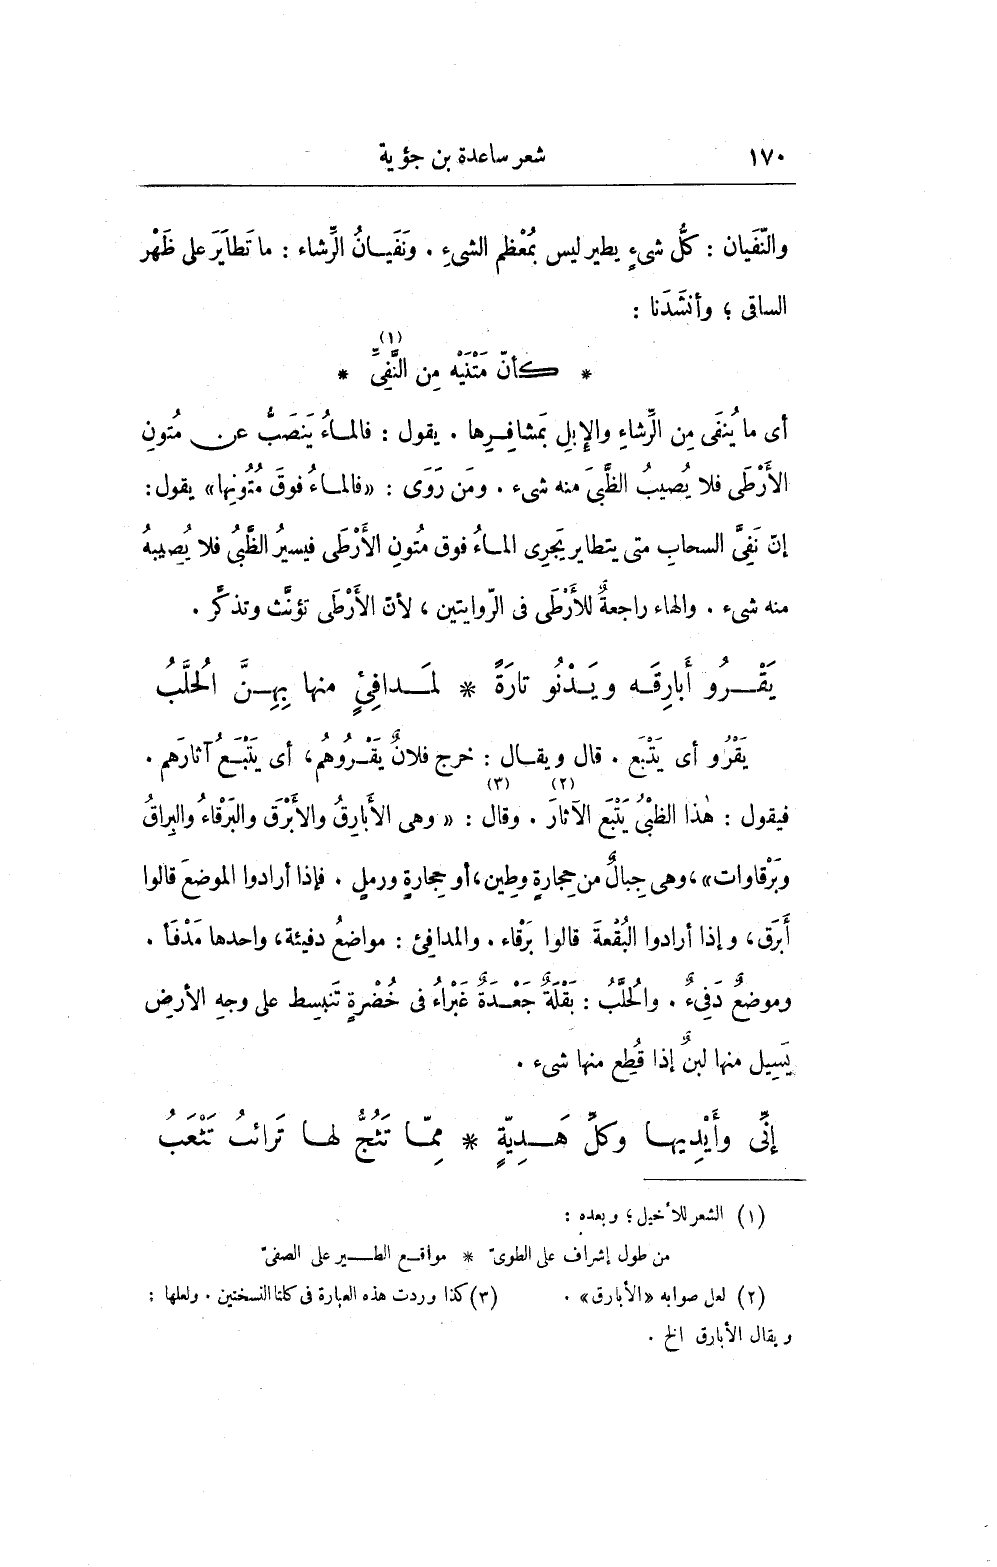 ١٧٠ شعر ساعدة بن جؤية
والنَّفَيان : كلُّ شىءٍ يطير ليس بمُعْظم الشىءِ . ونَفَيــانُ الرِّشاء : ما تَطايَرَ على ظَهْر
الساقى ؛ وأنشَدَنا :
* كأنّ مَتْنَيْه مِن النَّفِىِّ (١) *
أى ما يُنفَى مِن الرِّشاءِ والإبلِ بمَشافِرِها . يقول : فالمــاءُ يَنصَبُّ عن مُتونِ
الأَرْطَى فلا يُصيبُ الظَّبىَ منه شىء . ومَن رَوَى : «فالمــاءُ فوقَ مُتُونِها» يقول:
إنّ نَفِىَّ السحابِ متى يتطاير يَجرِى المــاءُ فوق مُتونِ الأَرْطَى فيسيرُ الظَّبىُ فلا يُصِيبهُ
منه شىء . والهاء راجعةٌ للأَرْطَى فى الرّوايتين ، لأنّ الأَرْطَى تؤنَّث وتذكَّر .
يَقْــرُو أَبارِقَــه ويَــدْنُو تارَةً * لمَــدافِئٍ منها بِهِــنَّ الحُلَّبُ
يَقْرُو أى يَتْبَع . قال ويقــال : خرج فلانٌ يَقْــرُوهُم، أى يَتْبَــعُ آثارَهم .
فيقول : هٰذا الظبْىُ يَتْبَع الآثارَ (٢) . وقال (٣) : « وهى الأَبارِقُ والأَبْرَق والبَرْقاءُ والبِراقُ
وبَرْقاوات» ، وهى جِبالٌ من حِجارةٍ وطِين، أو حِجارةٍ ورملٍ . فإذا أرادوا الموضعَ قالوا
أَبرَق، وإذا أرادوا البُقْعةَ قالوا بَرْقاء . والمدافِئ : مواضعُ دفيئة، واحدها مَدْفَأ .
وموضعٌ دَفِىءٌ . والحُلَّبُ : بَقْلَةٌ جَعْــدَةٌ غَبْراءُ فى خُضْرةٍ تَنبسِط على وجهِ الأرضِ
يَسِيل منها لبنٌ إذا قُطِع منها شىء .
إنِّى وأَيْدِيهــا وكلِّ هَــدِيّةٍ * مِمّــا تَثُجُّ لهــا تَرائبُ تَثْعَبُ
(١) الشعر للأخيل ؛ وبعده :
من طول إشراف على الطوىّ * مواقــع الطــير على الصفىّ
(٢) لعل صوابه «الأبارق» . (٣) كذا وردت هذه العبارة فى كلتا النسختين . ولعلها :
ويقال الأبارق الخ .